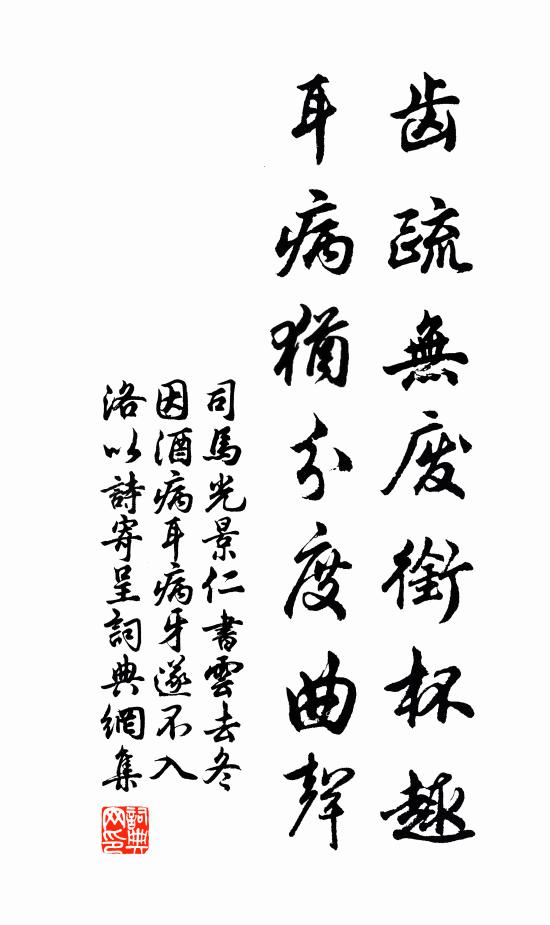 齿疏無廢銜杯趣
耳病猶分度曲聲
司馬光景仁書雲去冬
因酒病耳病牙遂不入
洛以詩寄呈詞典網集
詞典网印